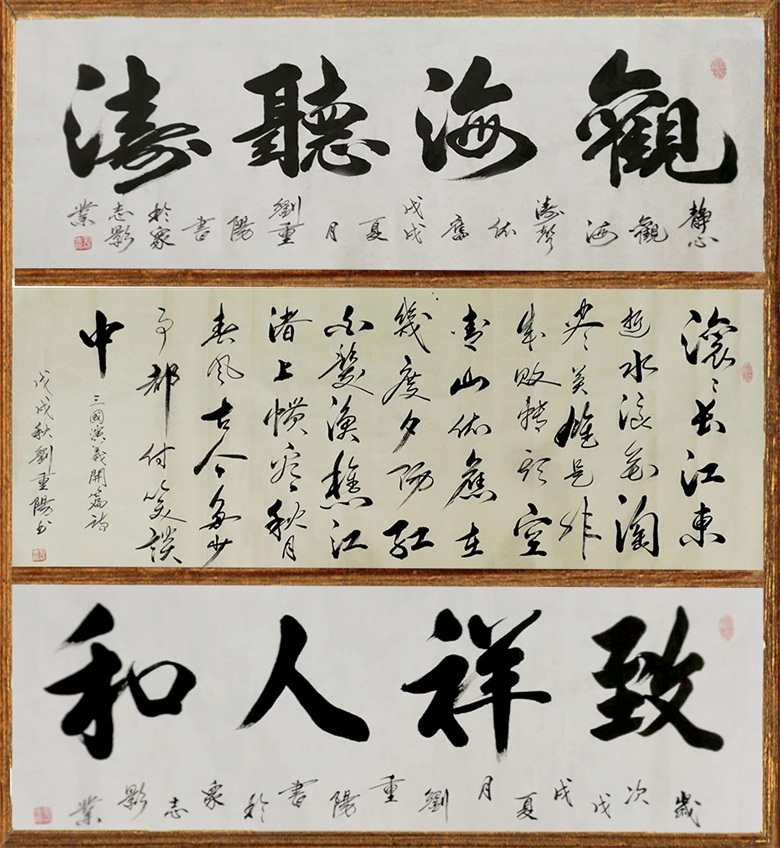 觀海聽濤
靜心觀海濤聲依舊戊戌夏月劉重陽書於衆志影業
滾〻長江東
逝水浪花淘
尽英雄是非
成敗轉頭空
青山依舊在
幾度夕陽紅
白髮漁樵江
渚上慣看秋月
春風古今多少
事都付笑談
中
三國演義開篇詞
戊戌秋劉重陽书
致祥人和
歲次戊戌夏月劉重陽書於衆志影業